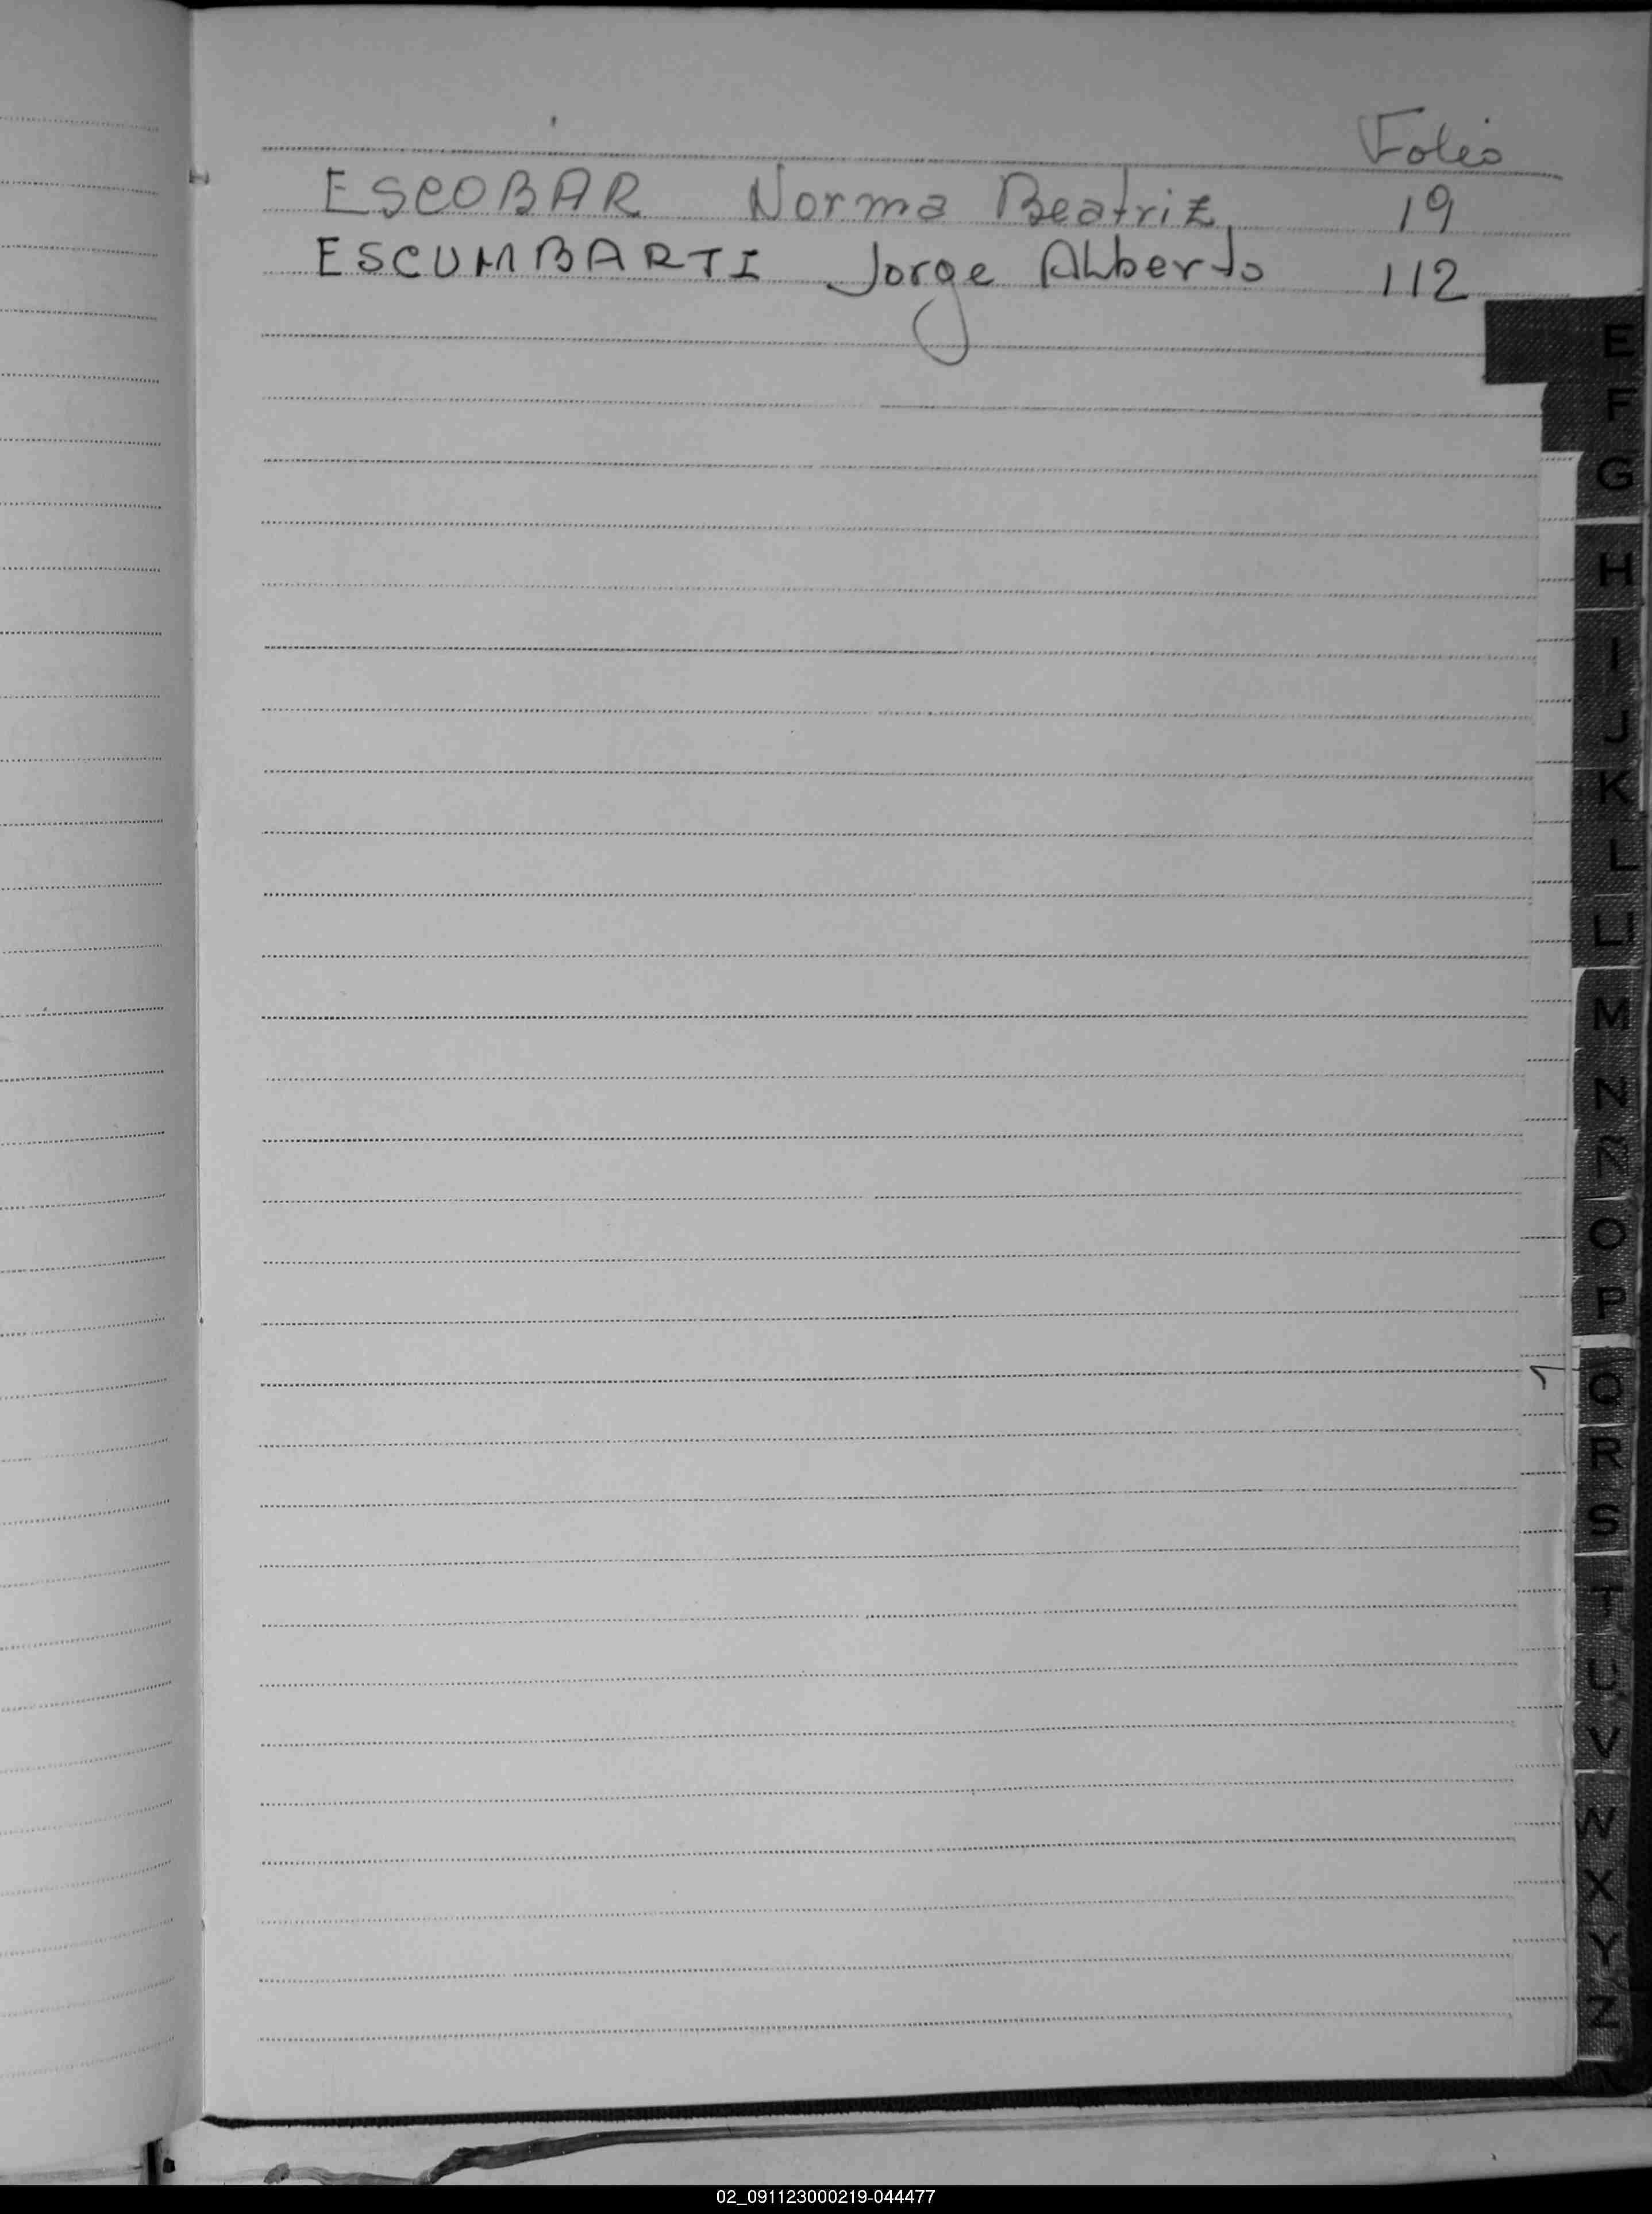 Folio
ESCOBAR Norma Beatriz 19
ESCUMBARTI Jorge Alberto 112
E
F
G
H
I
J
K
L
LL
M
N
Ñ
O
P
Q
R
S
T
U
V
W
X
Y
Z
02_091123000219-044477